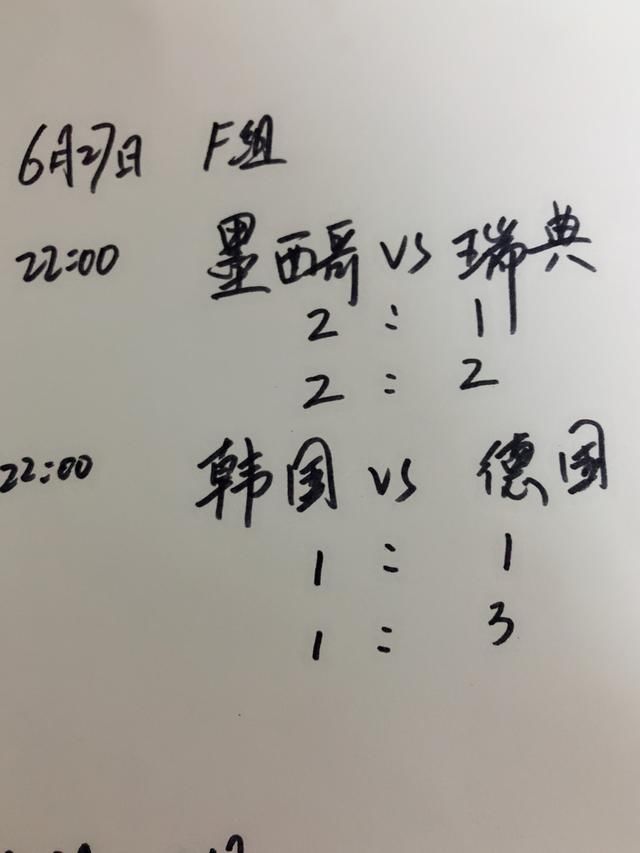 6月27日 F组
22:00 墨西哥 VS 瑞典
2 : 1
2 : 2
22:00 韩国 VS 德国
1 : 1
1 : 3